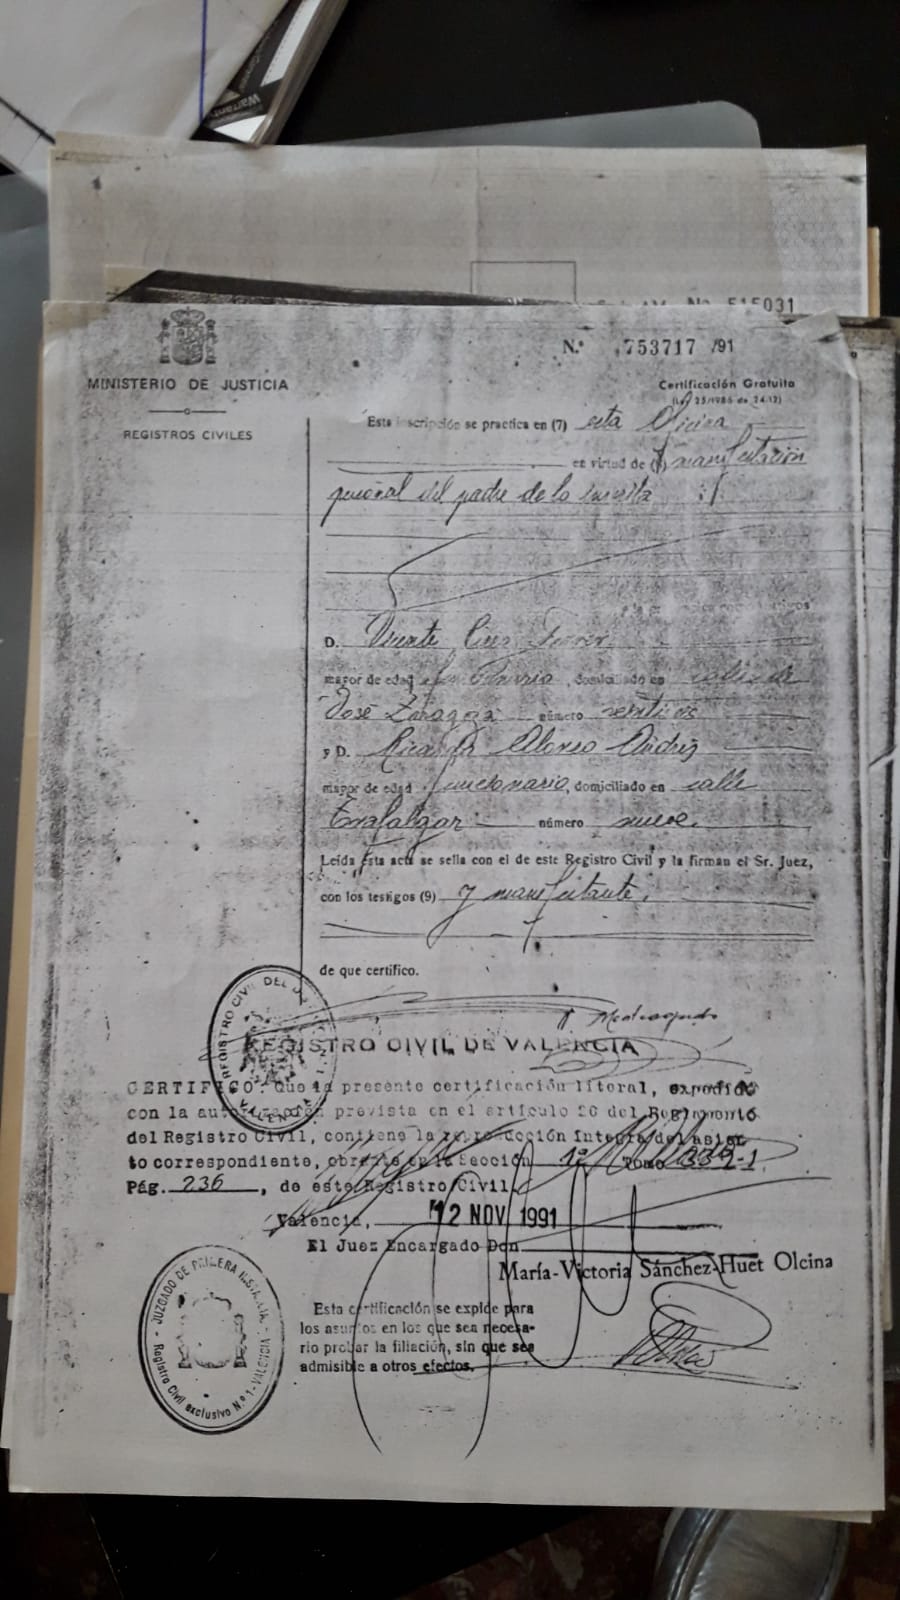 Warranty
Nº 515031
N.º 753717 /91
MINISTERIO DE JUSTICIA
REGISTROS CIVILES
Certificación Gratuita
(Ley 25/1986 de 24-12)
Esta inscripción se practica en (7) esta Oficina
en virtud de (8) manifestación
personal del padre de la inscrita
D. Vicente
mayor de edad, domiciliado en calle de
José Zaragoza número veintidos
y D. Ricardo Alonso
mayor de edad funcionario, domiciliado en calle
Trafalgar número nueve.
Leída esta acta se sella con el de este Registro Civil y la firman el Sr. Juez,
con los testigos (9) y manifestante.
de que certifico.
REGISTRO CIVIL DE VALENCIA
CERTIFICO: Que la presente certificación literal, expedida
con la autorización prevista en el artículo 26 del Reglamento
del Registro Civil, contiene la reproducción íntegra del asien
to correspondiente, obrante en la Sección 1ª Tomo 332-1
Pág. 236, de este Registro Civil.
Valencia, 12 NOV 1991
El Juez Encargado Don
María-Victoria Sánchez-Huet Olcina
Esta certificación se expide para
los asuntos en los que sea necesa-
rio probar la filiación, sin que sea
admisible a otros efectos.
JUZGADO DE PRIMERA INSTANCIA - VALENCIA
Registro Civil exclusivo N.º 1